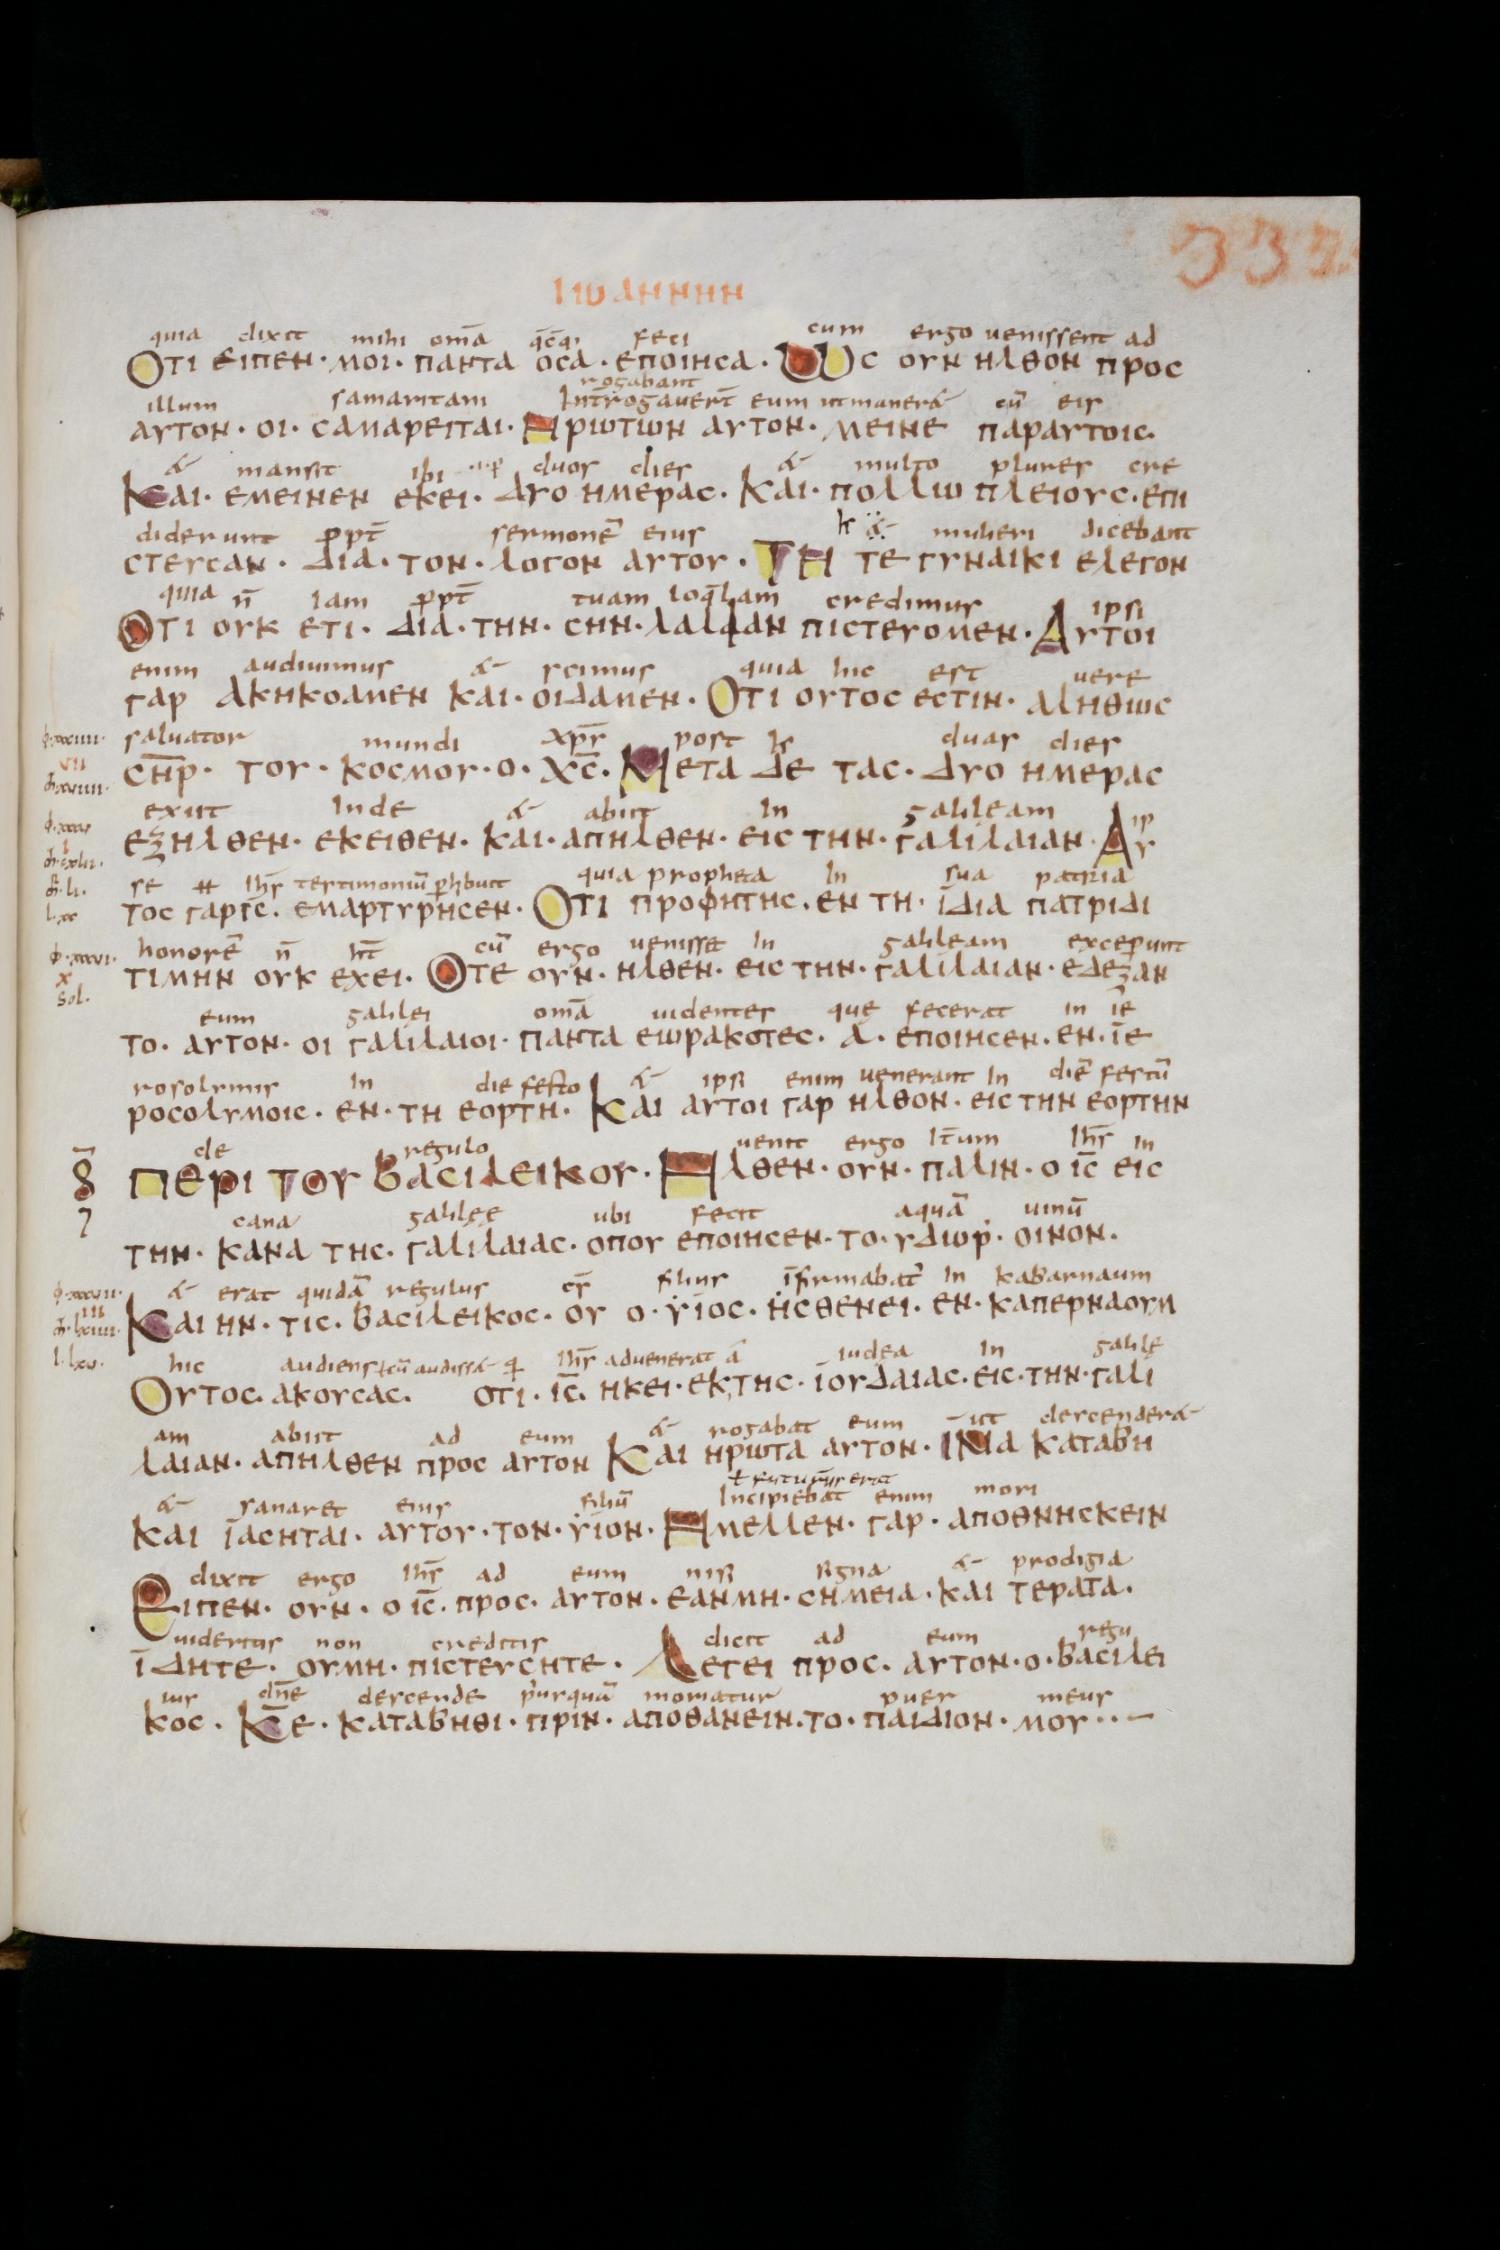 337.
ΙωΑΝΝΗΝ
quia dixit mihi om̄a q̄cq̄ feci cum ergo uenissent ad
ΟΤΙ ΕΙΠΕΝ· ΜΟΙ· ΠΑΝΤΑ ΟCΑ· ΕΠΟΙΗCΑ· ωC ΟΥΝ ΗΛΘΟΝ ΠΡΟC
rogabant
illum samaritani Int̄rogauer̄t eum ut manerā cū eis
ΑΥΤΟΝ· ΟΙ· CΑΜΑΡΕΙΤΑΙ· ΗΡωΤωΝ ΑΥΤΟΝ· ΜΕΙΝΕ ΠΑΡΑΥΤΟΙC·
& mansit ibi duos dies & multo plures cre
ΚΑΙ· ΕΜΕΙΝΕΝ ΕΚΕΙ· ΔΥΟ ΗΜΕΡΑC· ΚΑΙ· ΠΟΛΛω ΠΛΕΙΟΥC· ΕΠΙ
diderunt ꝓpt̄ sermonē eius & mulieri dicebant
CΤΕΥCΑΝ· ΔΙΑ· ΤΟΝ· ΛΟΓΟΝ ΑΥΤΟΥ· ΤΗ ΤΕ ΓΥΝΑΙΚΙ ΕΛΕΓΟΝ
quia n̄ iam ꝓpt̄ tuam loq̄lam credimus ipsi
ΟΤΙ ΟΥΚ ΕΤΙ· ΔΙΑ· ΤΗΝ· CΗΝ· ΛΑΛΙΑΝ ΠΙCΤΕΥΟΜΕΝ· ΑΥΤΟΙ
enim audiuimus & scimus quia hic est uere
ΓΑΡ ΑΚΗΚΟΑΜΕΝ ΚΑΙ· ΟΙΔΑΜΕΝ· ΟΤΙ ΟΥΤΟC ΕCΤΙΝ· ΑΛΗΘωC
saluator mundi xp̄s post duas dies
CΗ̄Ρ· ΤΟΥ· ΚΟCΜΟΥ· Ο· ΧC̄· ΜΕΤΑ ΔΕ ΤΑC· ΔΥΟ ΗΜΕΡΑC
exiit Inde & abiit In galileam ip
ΕΞΗΛΘΕΝ· ΕΚΕΙΘΕΝ· ΚΑΙ· ΑΠΗΛΘΕΝ· ΕΙC ΤΗΝ· ΓΑΛΙΛΑΙΑΝ· ΑΥ
se ihs̄ testimoniū ꝑhibuit quia propheta In sua patria
ΤΟC ΓΑΡ ΙC̄· ΕΜΑΡΤΥΡΗCΕΝ· ΟΤΙ ΠΡΟΦΗΤΗC· ΕΝ ΤΗ· ΙΔΙΑ ΠΑΤΡΙΔΙ
honorē n̄ ht̄ cū ergo uenisset In galileam exceperunt
ΤΙΜΗΝ ΟΥΚ ΕΧΕΙ· ΟΤΕ ΟΥΝ· ΗΛΘΕΝ· ΕΙC ΤΗΝ· ΓΑΛΙΛΑΙΑΝ· ΕΔΕΞΑΝ
eum galilei om̄a uidentes que fecerat in ie
ΤΟ· ΑΥΤΟΝ· ΟΙ ΓΑΛΙΛΑΙΟΙ· ΠΑΝΤΑ ΕωΡΑΚΟΤΕC· Α· ΕΠΟΙΗCΕΝ· ΕΝ· ΙΕ
rosolymis in die festo & ipsi enim uenerant In diē festū
ΡΟCΟΛΥΜΟΙC· ΕΝ· ΤΗ ΕΟΡΤΗ· ΚΑΙ ΑΥΤΟΙ ΓΑΡ ΗΛΘΟΝ· ΕΙC ΤΗΝ ΕΟΡΤΗΝ
de regulo uenit ergo It̄um ihs̄ in
ΠΕΡΙ ΤΟΥ ΒΑCΙΛΕΙΚΟΥ· ΗΛΘΕΝ· ΟΥΝ· ΠΑΛΙΝ· Ο ΙC̄ ΕΙC
cana galilee ubi fecit aquā uinū
ΤΗΝ· ΚΑΝΑ ΤΗC· ΓΑΛΙΛΑΙΑC· ΟΠΟΥ ΕΠΟΙΗCΕΝ· ΤΟ· ΥΔωΡ· ΟΙΝΟΝ·
& erat quidā regulus filius Infirmabat̄ In kabarnaum
ΚΑΙ ΗΝ· ΤΙC· ΒΑCΙΛΕΙΚΟC· ΟΥ Ο· ΥΙΟC· ΗCΘΕΝΕΙ· ΕΝ· ΚΑΠΕΡΝΑΟΥΜ
hic audiens ł cū audiss& ihs̄ aduenerat ā iudea In galile
ΟΥΤΟC· ΑΚΟΥCΑC· ΟΤΙ· ΙC̄· ΗΚΕΙ· ΕΚ ΤΗC· ΙΟΥΔΑΙΑC· ΕΙC· ΤΗΝ· ΓΑΛΙ
am abiit ad eum & rogabat eum ut descenderā
ΛΑΙΑΝ· ΑΠΗΛΘΕΝ ΠΡΟC ΑΥΤΟΝ ΚΑΙ ΗΡωΤΑ ΑΥΤΟΝ· ΙΝΑ ΚΑΤΑΒΗ
ł futurus erat
& sanaret eius filiū Incipiebat enim mori
ΚΑΙ ΙΑCΗΤΑΙ· ΑΥΤΟΥ· ΤΟΝ· ΥΙΟΝ· ΗΜΕΛΛΕΝ· ΓΑΡ· ΑΠΟΘΝΗCΚΕΙΝ
dixit ergo ihs̄ ad eum nisi signa & prodigia
ΕΙΠΕΝ· ΟΥΝ· Ο ΙC̄· ΠΡΟC· ΑΥΤΟΝ· ΕΑΝ ΜΗ· CΗΜΕΙΑ· ΚΑΙ ΤΕΡΑΤΑ·
uidertis non creditis dicit ad eum regu
ΙΔΗΤΕ· ΟΥΜΗ· ΠΙCΤΕΥCΗΤΕ· ΛΕΓΕΙ ΠΡΟC· ΑΥΤΟΝ· Ο· ΒΑCΙΛΕΙ
lus dn̄e descende priusquā moriatur puer meus
ΚΟC· ΚΕ̄· ΚΑΤΑΒΗΘΙ· ΠΡΙΝ· ΑΠΟΘΑΝΕΙΝ· ΤΟ· ΠΑΙΔΙΟΝ· ΜΟΥ··—